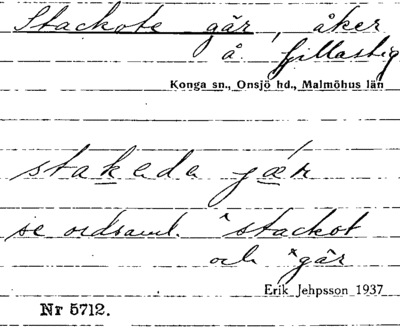 Stackote går, åker
å Gillastig
Konga sn., Onsjö hd., Malmöhus län
stakada gær
se ordsaml. *stackot
och *går
Erik Jehpsson 1937
Nr 5712.